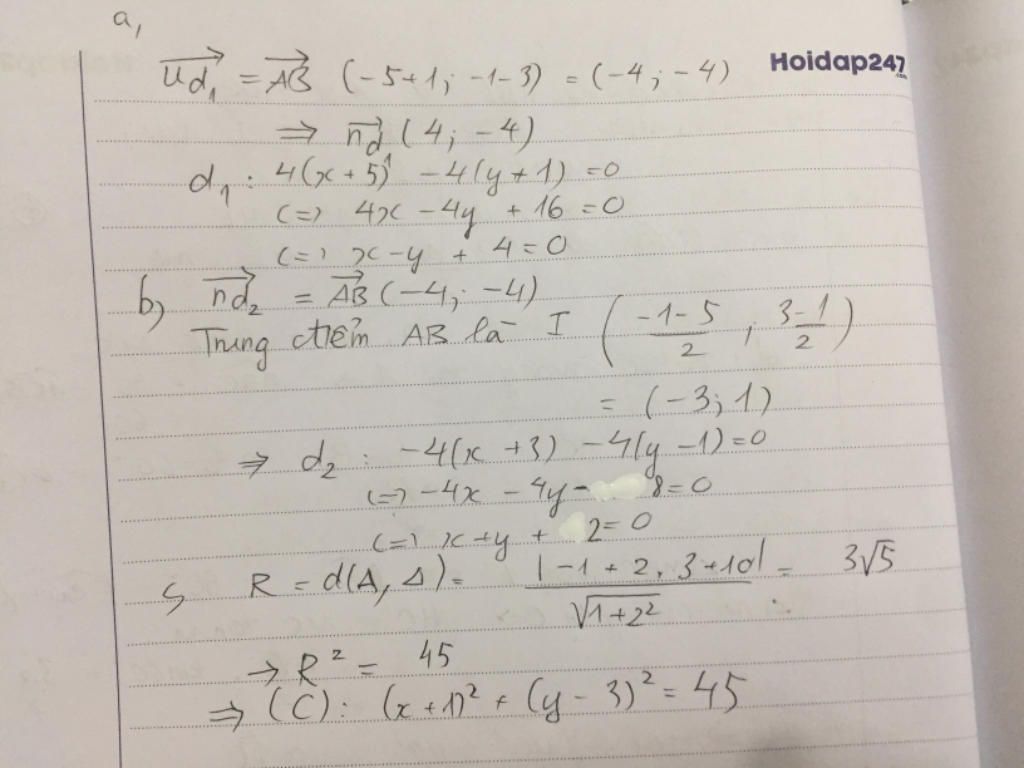 a,
Hoidap247.com
→u_d₁ = →AB (-5+1; -1-3) = (-4; -4)
⇒ →n_d₁ (4; -4)
d₁ : 4(x+5) - 4(y+1) = 0
(=) 4x - 4y + 16 = 0
(=) x - y + 4 = 0
b) →n_d₂ = →AB (-4; -4)
Trung điểm AB là I ((-1-5)/2 ; (3-1)/2)
= (-3; 1)
⇒ d₂ : -4(x+3) - 4(y-1) = 0
(=) -4x - 4y - 8 = 0
(=) x + y + 2 = 0
c, R = d(A, Δ) = |-1 + 2.3 + 10| / √(1+2²) = 3√5
→ R² = 45
⇒ (C): (x+1)² + (y-3)² = 45